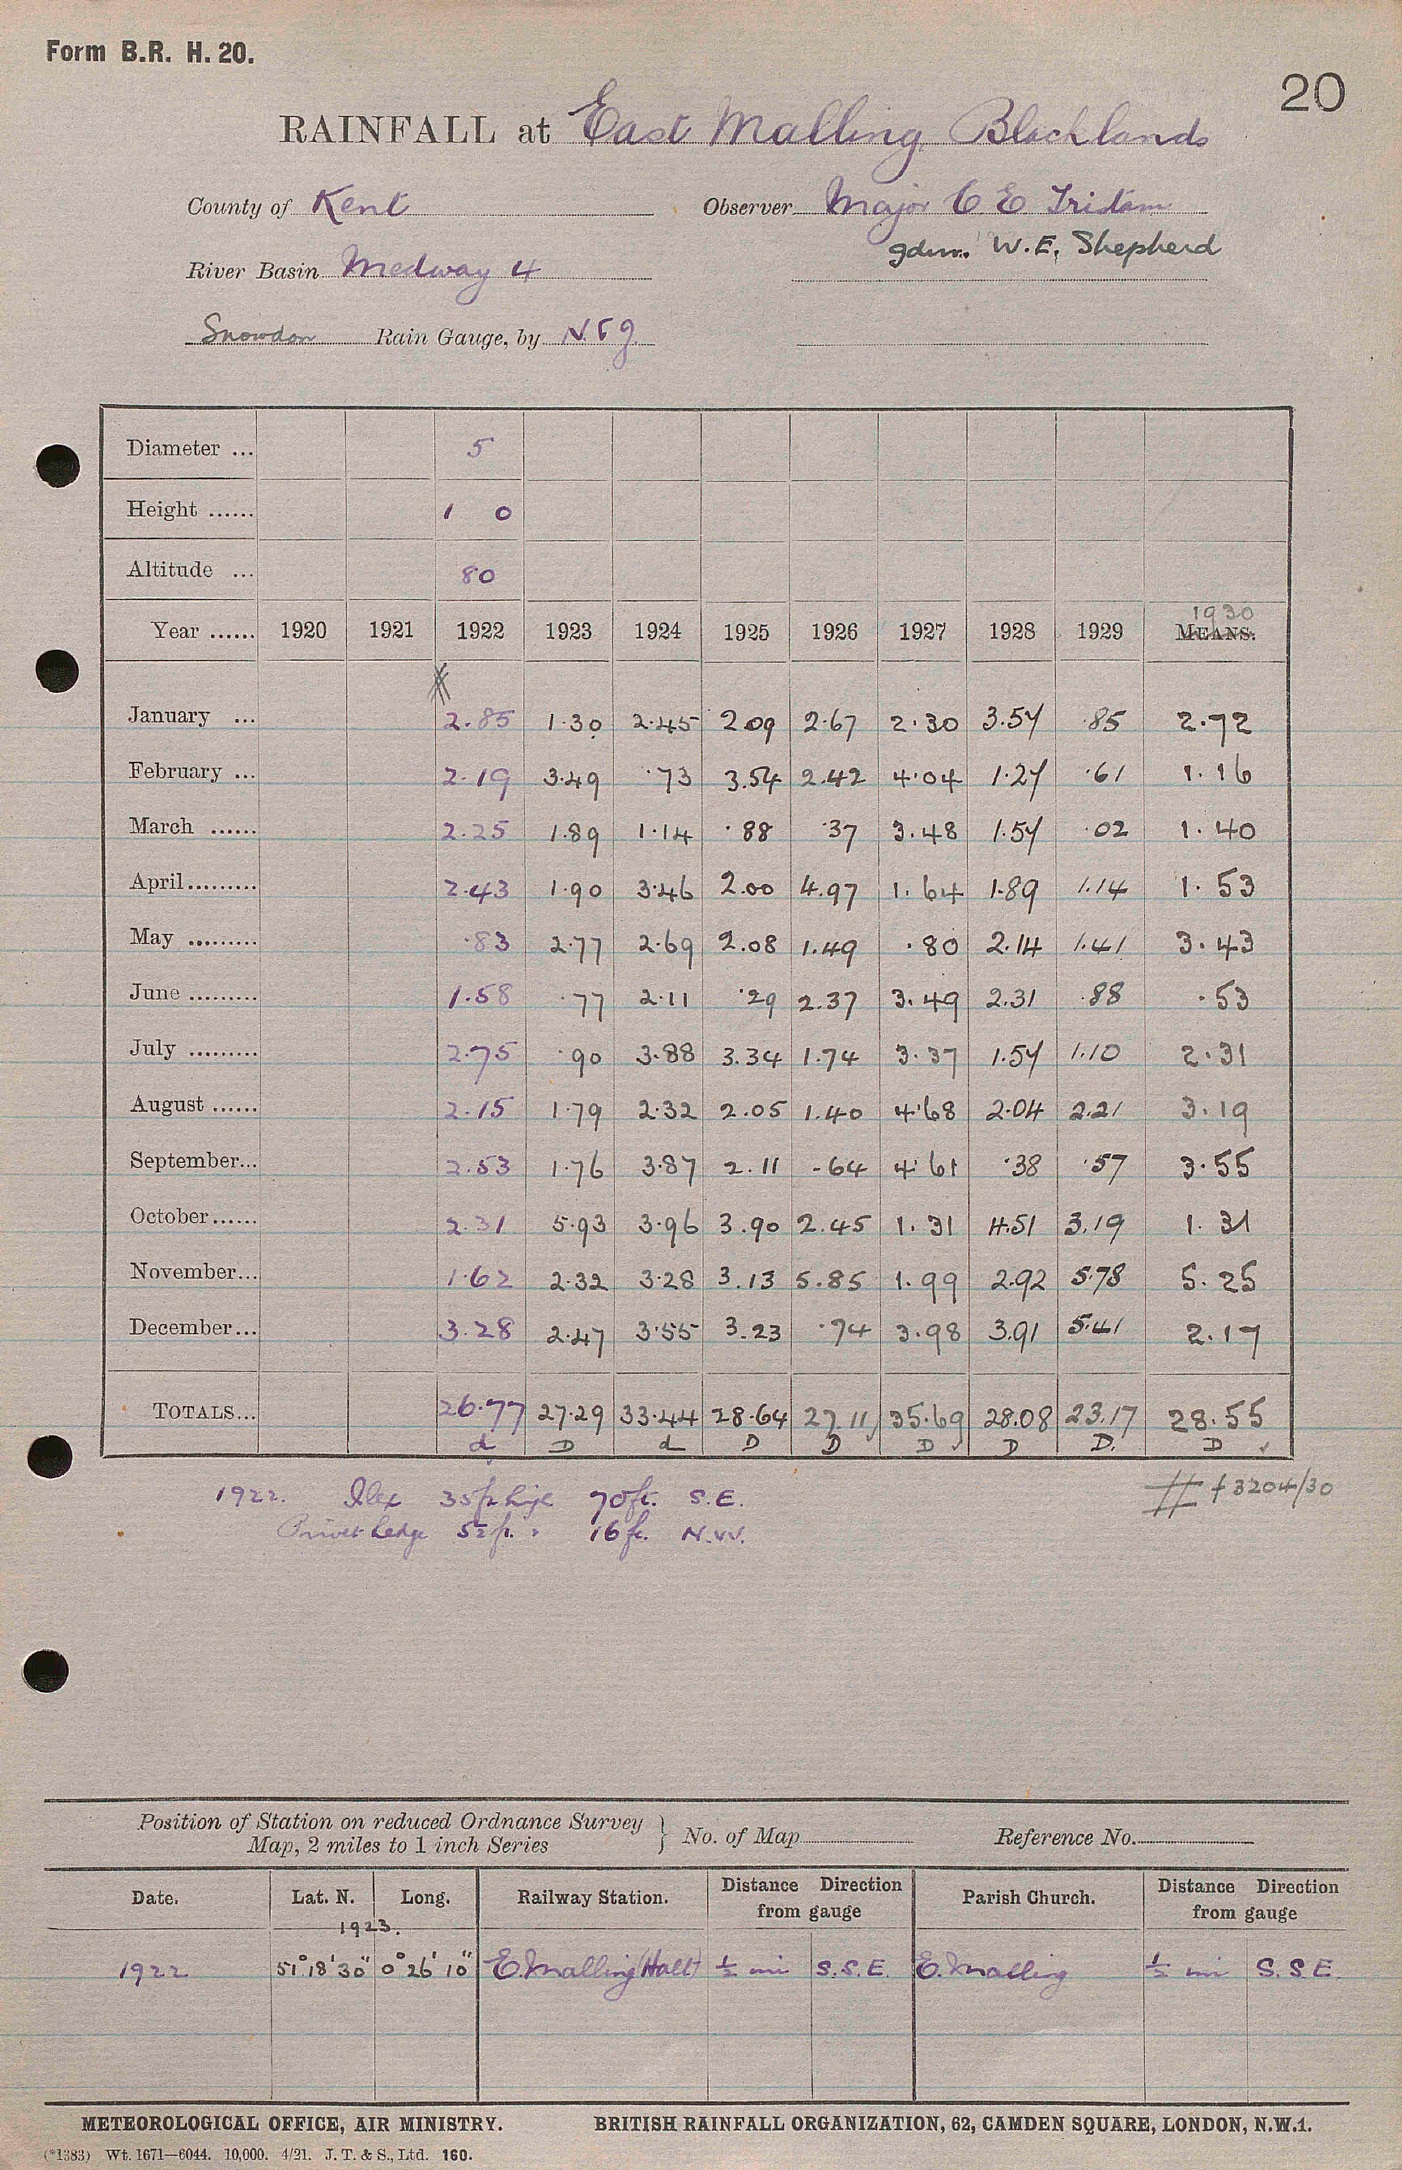 Form B.R. H. 20.
20
RAINFALL at East Malling Blacklands
County of Kent Observer Major C E Tridam
gdnr. W. E. Shepherd
River Basin Medway 4
Snowdon Rain Gauge, by N. & Z.
Diameter ... 5
Height ...... 1 0
Altitude ... 80
1930
Year ...... 1920 1921 1922 1923 1924 1925 1926 1927 1928 1929 MEANS.
January ... 2.85 1.30 2.45 2.09 2.67 2.30 3.57 .85 2.72
February ... 2.19 3.49 .73 3.54 2.42 4.04 1.27 .61 1.16
March ...... 2.25 1.89 1.14 .88 .37 3.48 1.57 .02 1.40
April......... 2.43 1.90 3.46 2.00 4.97 1.64 1.89 1.14 1.53
May ......... .83 2.77 2.69 2.08 1.49 .80 2.14 1.41 3.43
June ......... 1.58 .77 2.11 .29 2.37 3.49 2.31 .88 .53
July ......... 2.75 .90 3.88 3.34 1.74 3.37 1.57 1.10 2.31
August ...... 2.15 1.79 2.32 2.05 1.40 4.68 2.04 2.21 3.19
September... 2.53 1.76 3.87 2.11 .64 4.61 .38 .57 3.55
October...... 2.31 5.93 3.96 3.90 2.45 1.31 4.51 3.19 1.31
November... 1.62 2.32 3.28 3.13 5.85 1.99 2.92 5.78 5.25
December... 3.28 2.47 3.55 3.23 .74 3.98 3.91 5.41 2.17
TOTALS... 26.77 27.29 33.44 28.64 27.11 35.69 28.08 23.17 28.55
d D d D D D D D. D
1922. Ilex 35ft high 70ft. S.E.
Privet hedge 5½ft. " 16ft. N.W.
# f 3204/30
Position of Station on reduced Ordnance Survey
Map, 2 miles to 1 inch Series } No. of Map Reference No.
Date. Lat. N. Long. Railway Station. Distance Direction from gauge Parish Church. Distance Direction from gauge
1923.
1922 51°18'30" 0°26'10" E. Malling (Halt) ½ mi S.S.E. E. Malling ½ mi S.S.E.
METEOROLOGICAL OFFICE, AIR MINISTRY. BRITISH RAINFALL ORGANIZATION, 62, CAMDEN SQUARE, LONDON, N.W.1.
(*1383) Wt. 1671—6044. 10,000. 4/21. J. T. & S., Ltd. 160.